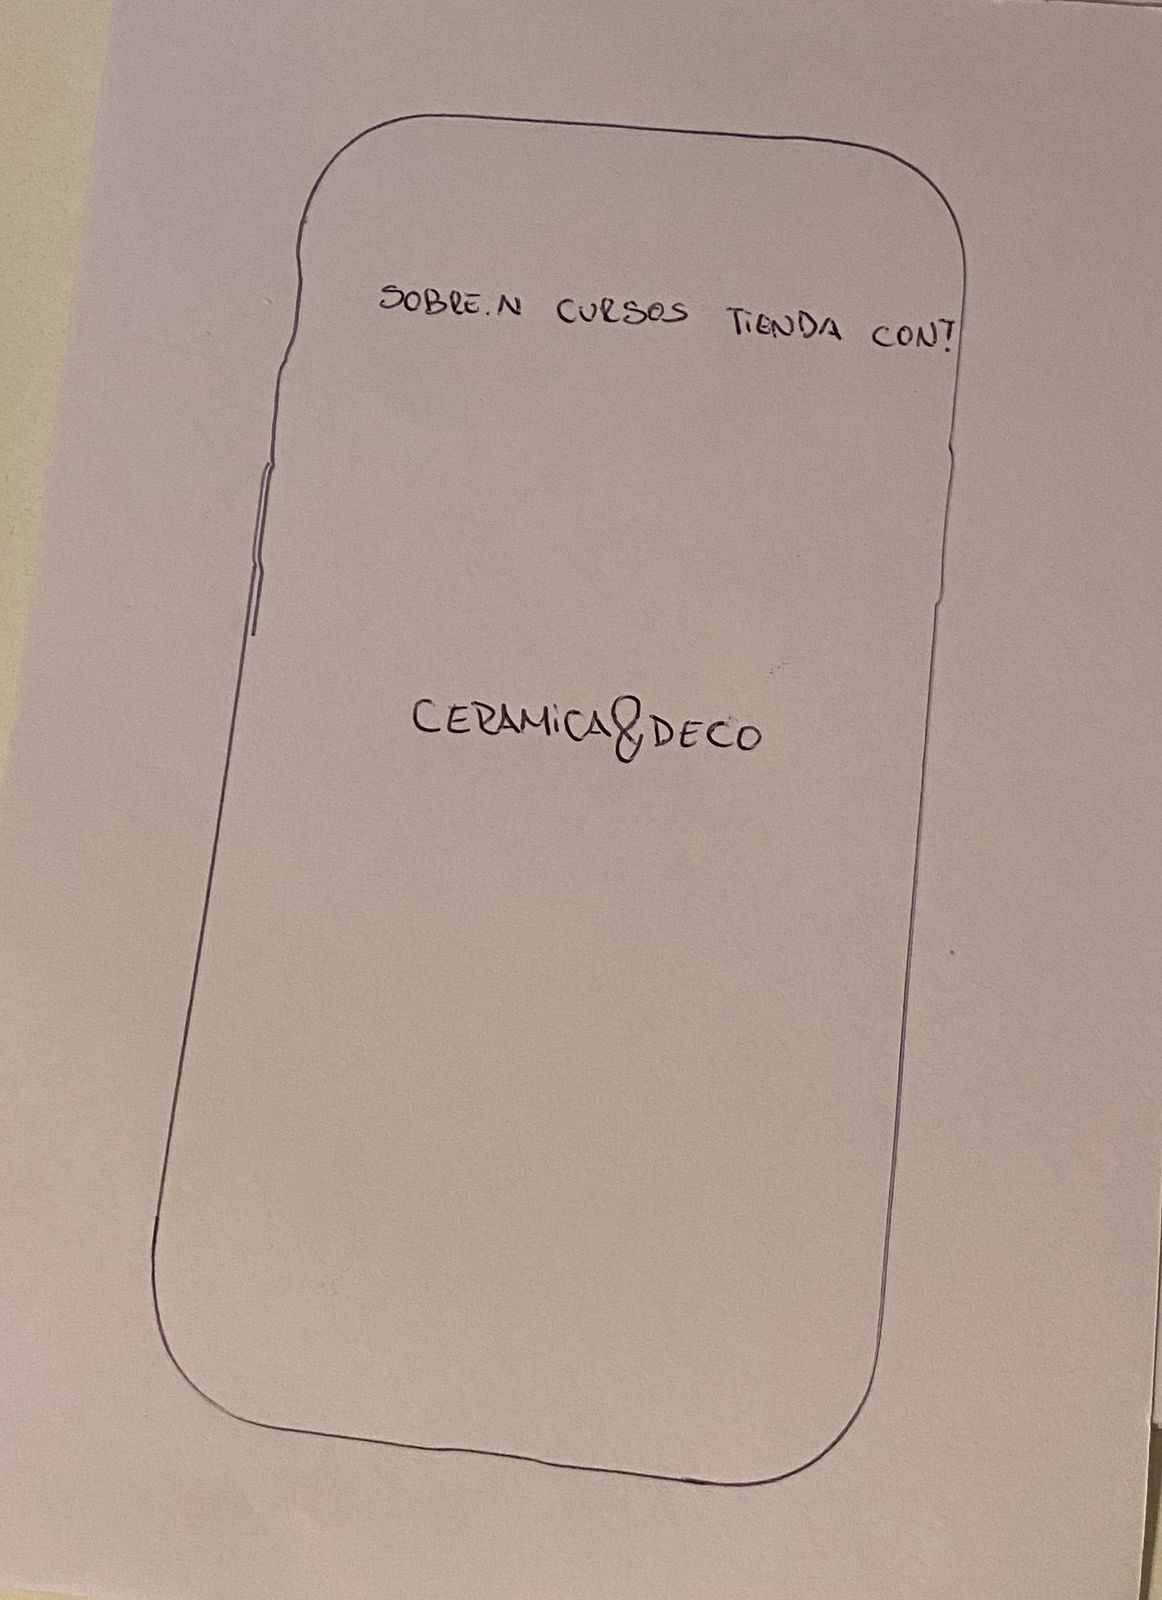 SOBRE.N CURSOS TIENDA CONT
CERAMICA&DECO